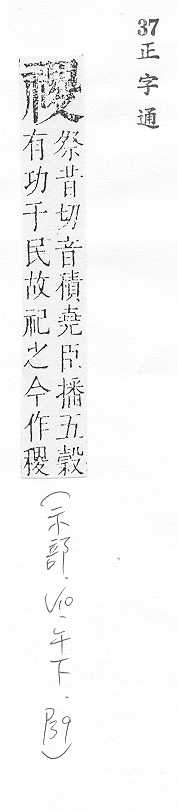 37正字通
禝
祭昔切音積堯臣播五穀
有功于民故祀之今作稷
(示部.V10.午下.P39)